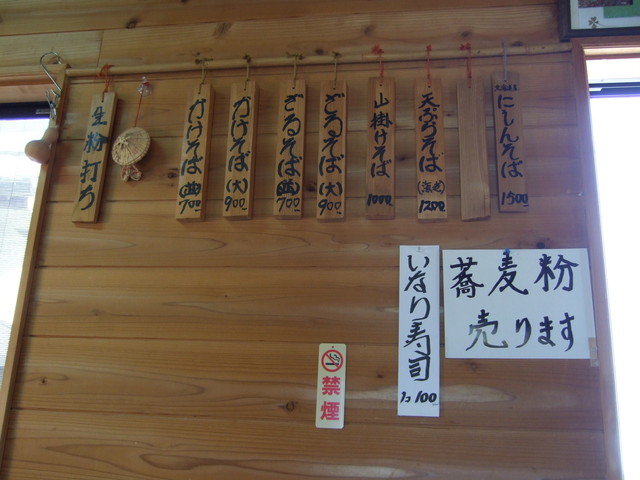 生粉打ち
かけそば(並)
700
かけそば(大)
900
ざるそば(並)
700
ざるそば(大)
900
山掛けそば
1000
天ぷらそば
(海老)
1200
にしんそば
1500
いなり寿司
1コ 100
蕎麦粉
売ります
禁煙